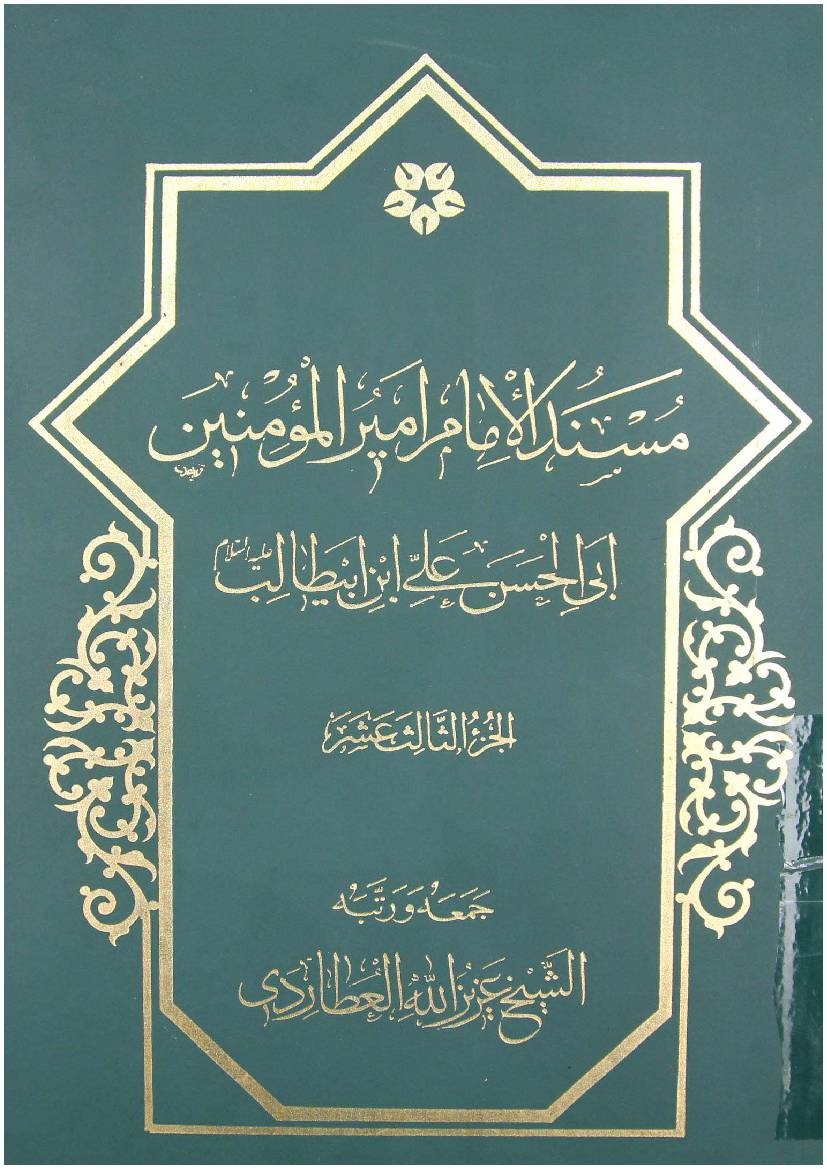 مُسْنَدُ الْإِمَامِ اَمِيرُ الْمُؤْمِنِينَ
اَبِى الْحَسَنِ عَلِىِّ ابْنِ ابيطَالِب عليه السلام
الجُزْءُ الثَّالِثَ عَشَرَ
جَمَعَهُ وَ رَتَّبَهُ
الشَّيْخ عَزِيزُ اللهِ الْعُطَارِدى